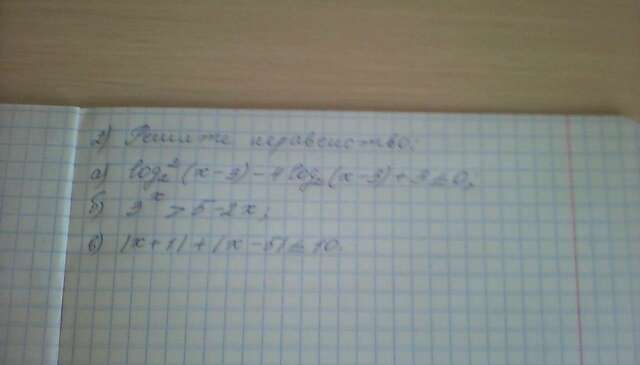 2) Решите неравенство:
а) log₂²(x-3)-4log₂(x-3)+3≤0;
б) 3ˣ>5-2x;
в) |x+1|+|x-5|≤10.